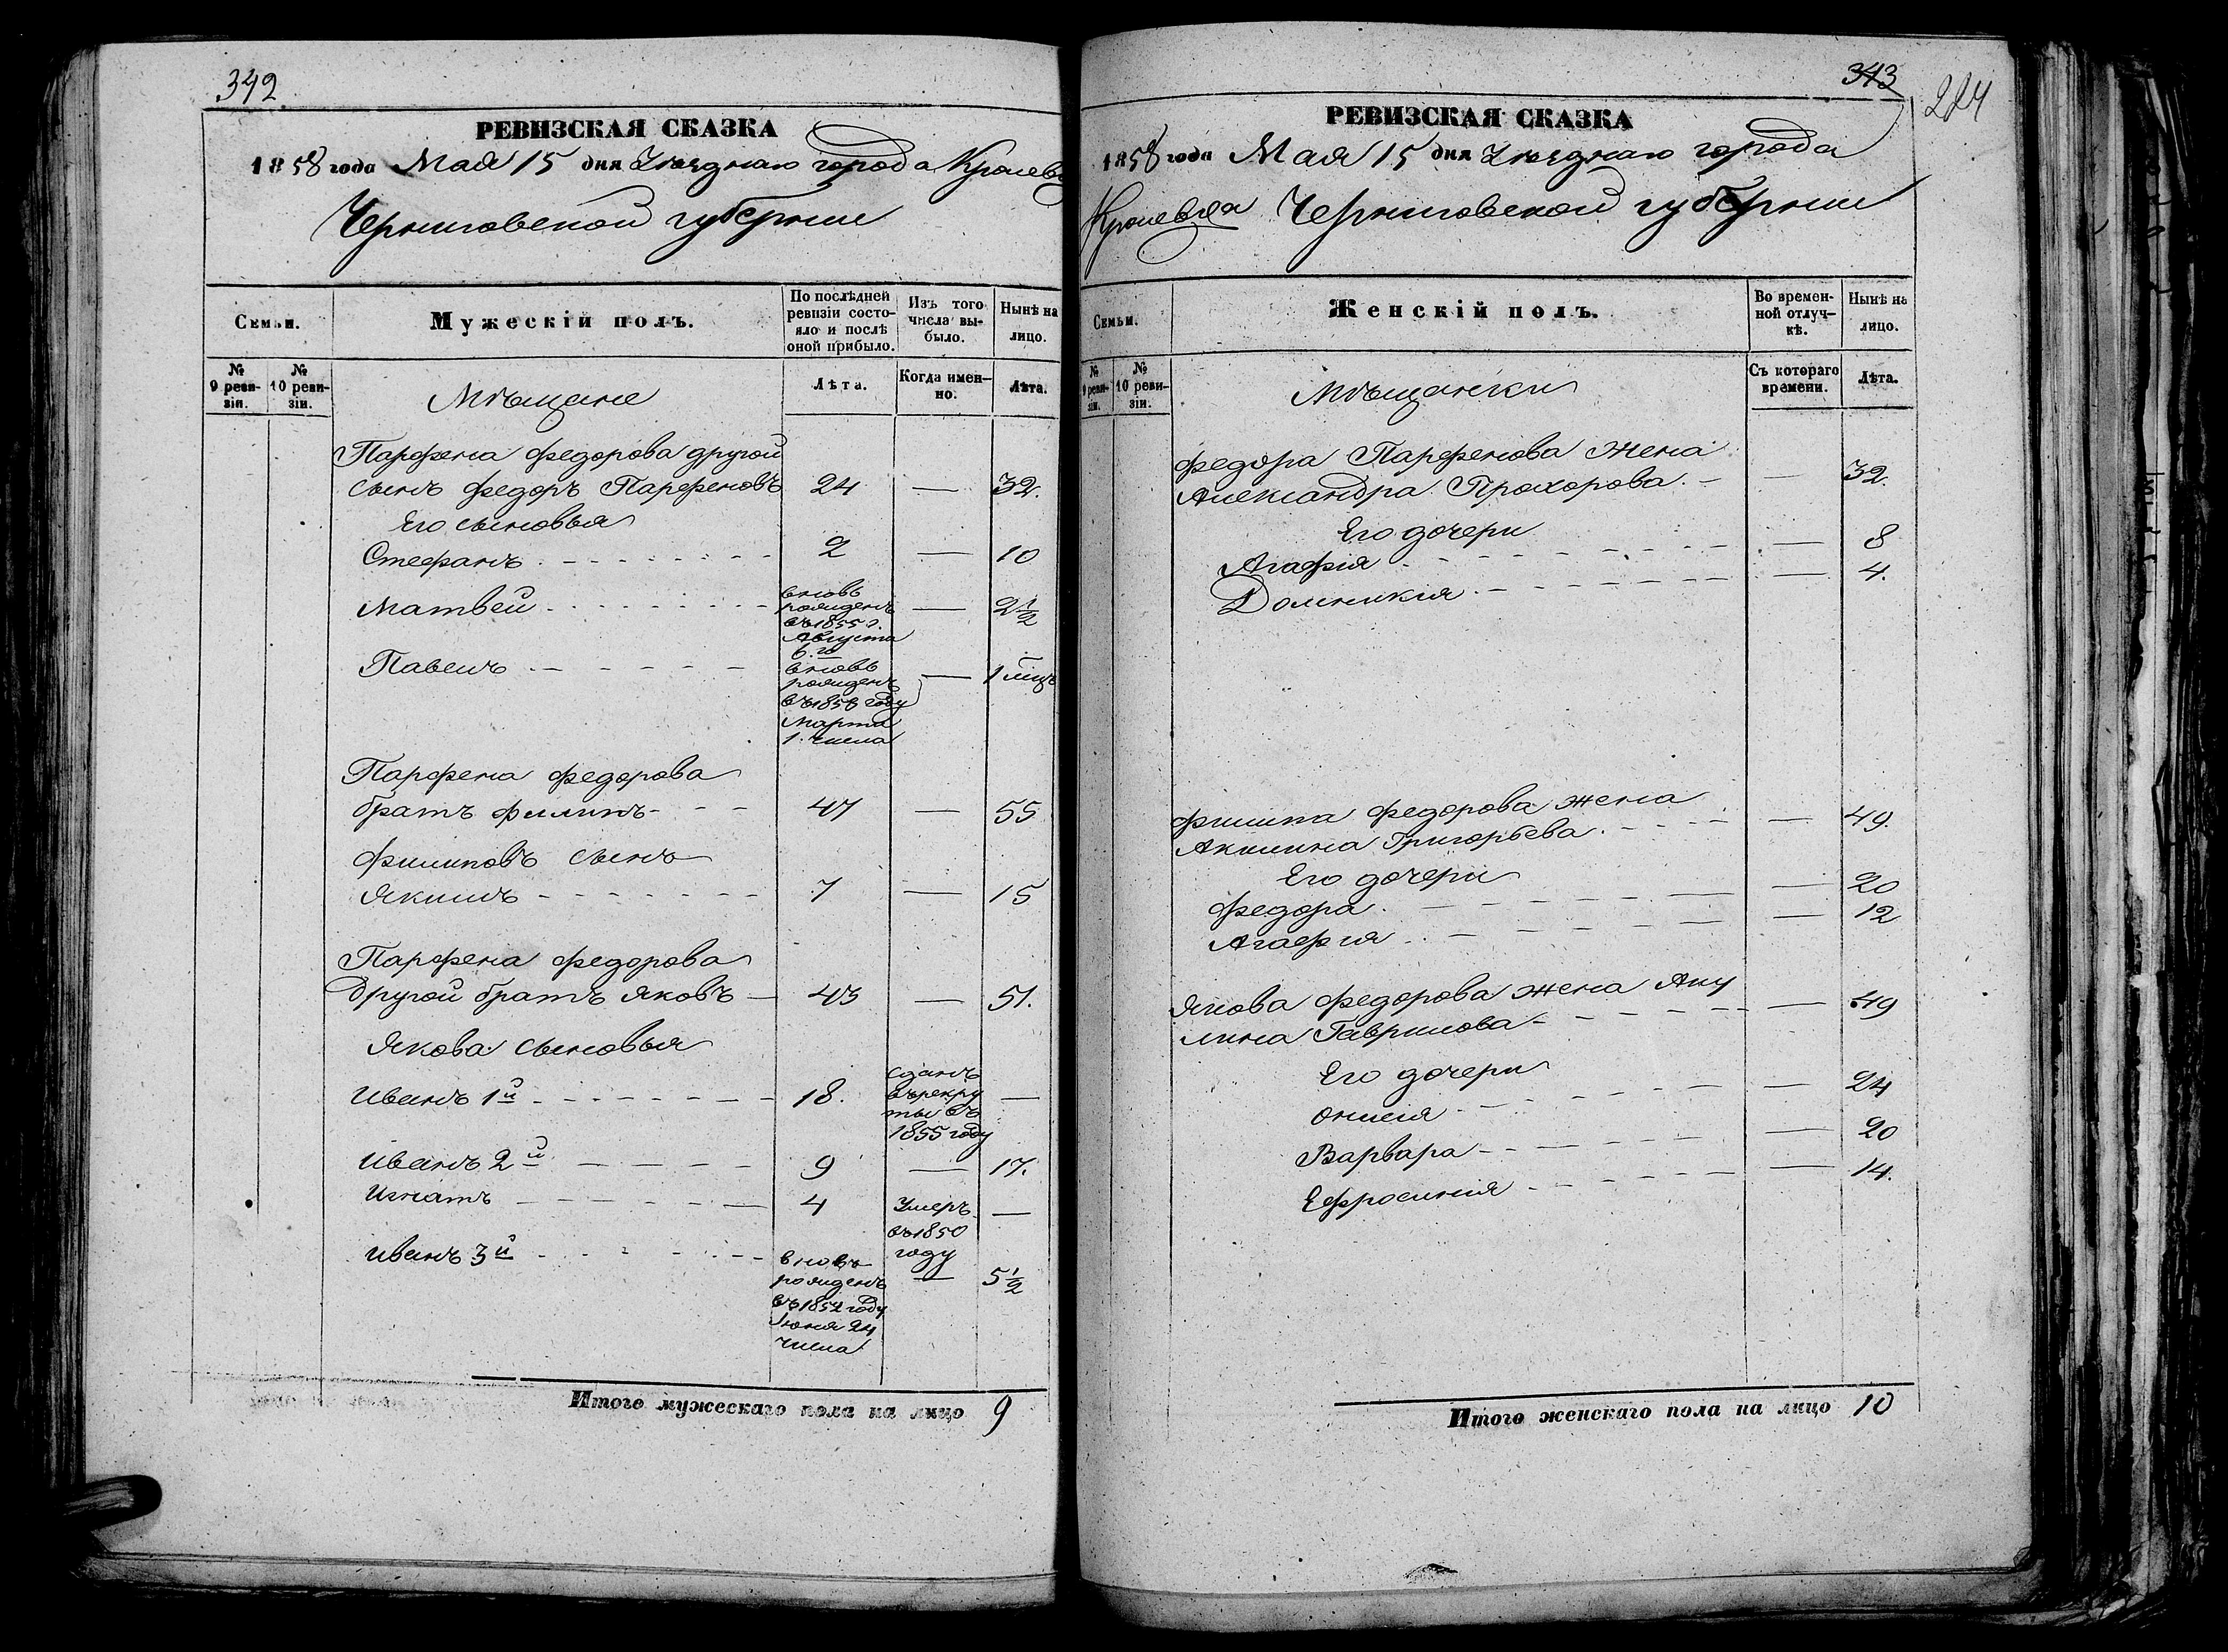 342
РЕВИЗСКАЯ СКАЗКА
1858 года Мая 15 дня Уѣзднаго города Кролевца
Черниговской губерніи
Семьи.
Мужескій полъ.
По послѣдней ревизіи состояло и послѣ оной прибыло.
Изъ того числа выбыло.
Нынѣ на лицо.
№ 9 ревизіи.
№ 10 ревизіи.
Мѣщане
Лѣта.
Когда именно.
Лѣта.
Парфена Федорова другой
сынъ Федоръ Парфеновъ 24 — 32.
Его сыновья
Стефанъ 2 — 10
Матвей вновь рожденъ въ 1855 г. Августа 6.го — 2 1/2
Павелъ вновь рожденъ въ 1858 году Марта 1. числа — 1 мцъ
Парфена Федорова
братъ Филипъ 47 — 55
Филиповъ сынъ
Якимъ 7 — 15
Парфена Федорова
другой братъ Яковъ 43 — 51.
Якова сыновья
Иванъ 1й 18. сданъ въ рекруты въ 1855 году —
Иванъ 2й 9 — 17.
Игнатъ 4 Умеръ въ 1850 году —
Иванъ 3й вновь рожденъ въ 1852 году Іюня 24 числа — 5 1/2
Итого мужескаго пола на лицо 9
343
224
РЕВИЗСКАЯ СКАЗКА
1858 года Мая 15 дня Уѣзднаго города
Кролевца Черниговской губерніи
Семьи.
Женскій полъ.
Во временной отлучкѣ.
Нынѣ на лицо.
№ 9 ревизіи.
№ 10 ревизіи.
Мѣщанки
Съ котораго времени.
Лѣта.
Федора Парфенова жена
Александра Прохорова. — 32.
Его дочери
Агафія — 8
Домникія — 4.
Филипа Федорова жена
Акилина Григорьева — 49.
Его дочери
Федора — 20
Агафія — 12
Якова Федорова жена Аку
лина Гаврилова — 49
Его дочери
Онисія — 24
Варвара — 20
Ефросинія — 14.
Итого женскаго пола на лицо 10